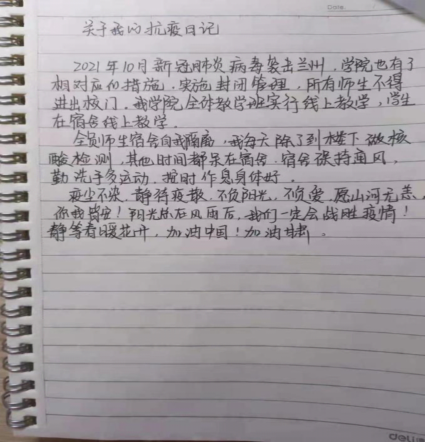 Date.
关于我的抗疫日记
2021年10月新冠肺炎病毒袭击兰州，学院也有了
相对应的措施，实施封闭管理，所有师生不得
进出校门，我学院全体教学班实行线上教学，学生
在宿舍线上教学。
全员师生宿舍自我隔离，我每天除了到楼下做核
酸检测，其他时间都呆在宿舍，宿舍保持通风，
勤洗手多运动，按时作息身体好。
疫少不染，静待疫散，不负阳光，不负爱，愿山河无恙，
你我皆安！阳光总在风雨后，我们一定会战胜疫情！
静等春暖花开，加油中国！加油甘肃。
deli